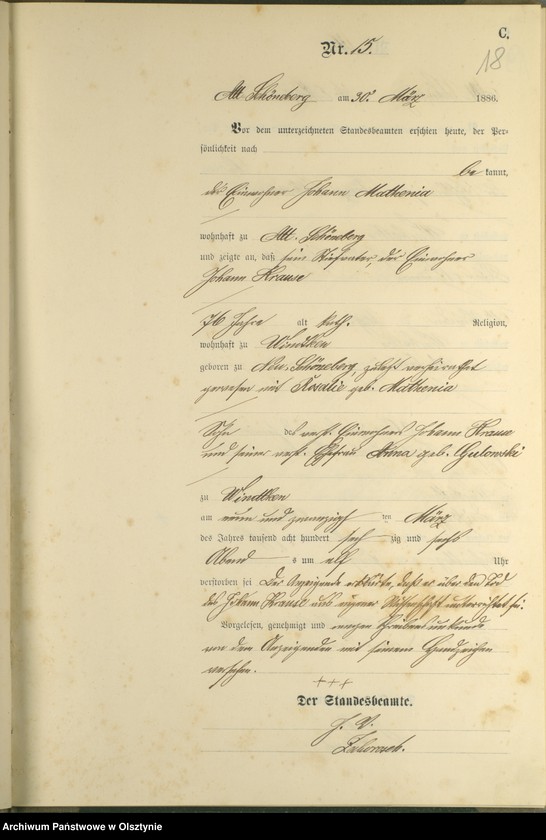 C.
18
Nr. 15.
Alt Schöneberg am 30t März 1886.
Vor dem unterzeichneten Standesbeamten erschien heute, der Per-
sönlichkeit nach
be kannt,
der Einwohner Johann Mathenia
wohnhaft zu Alt-Schöneberg
und zeigte an, daß sein Stiefvater, der Einwohner
Johann Krause
76 Jahre alt kath. Religion,
wohnhaft zu Windtken
geboren zu Neu-Schöneberg, zuletzt verheirathet
gewesen mit Rosalie geb. Mathenia
Sohn des verst. Einwohners Johann Krause
und seiner verst. Ehefrau Anna geb. Gulowski
zu Windtken
am neun und zwanzigsten März
des Jahres tausend acht hundert acht zig und sechs
Abend s um elf Uhr
verstorben sei Der Anzeigende erklärte, daß er über den Tod
des Johann Krause aus eigener Wissenschaft unterrichtet sei.
Vorgelesen, genehmigt und wegen Schreibensunkunde
von dem Anzeigenden mit seinem Handzeichen
versehen.
+++
Der Standesbeamte.
J. V.
Archiwum Państwowe w Olsztynie